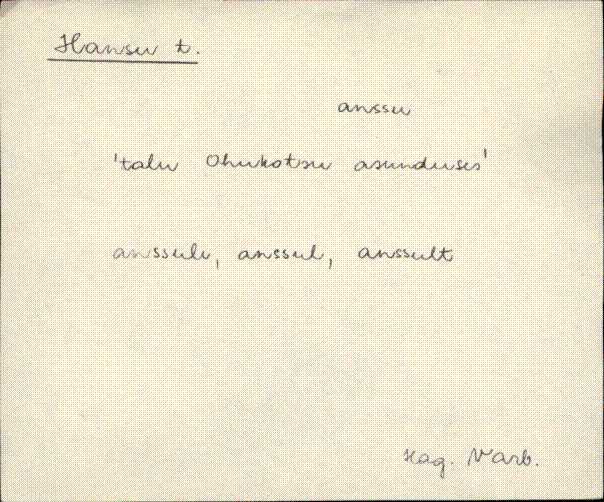 Hansu t.
anssu
'talu Ohukotsu asunduses'
anssulẹ, anssul, anssult
Hag. Varb.